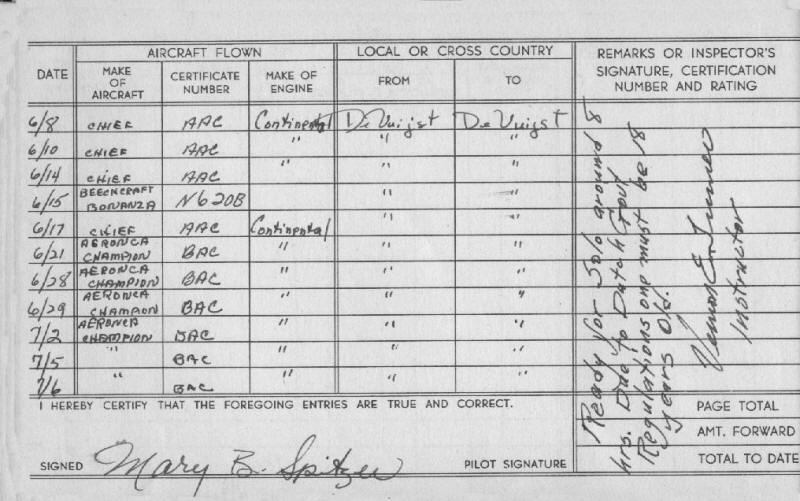 AIRCRAFT FLOWN LOCAL OR CROSS COUNTRY REMARKS OR INSPECTOR'S SIGNATURE, CERTIFICATION NUMBER AND RATING
DATE MAKE OF AIRCRAFT CERTIFICATE NUMBER MAKE OF ENGINE FROM TO
6/8 CHIEF AAC Continental De Vuijst De Vuijst
6/10 CHIEF AAC " " "
6/14 CHIEF AAC " " "
6/15 BEECHCRAFT BONANZA N620B " "
6/17 CHIEF AAC Continental " "
6/21 AERONCA CHAMPION BAC " " "
6/28 AERONCA CHAMPION BAC " " "
6/29 AERONCA CHAMPION BAC " " "
7/2 AERONCA CHAMPION BAC " " "
7/5 " BAC " " "
7/6 " BAC " " "
Ready for Solo around 8
hrs. Due to Dutch Gov't
Regulations one must be 18
years old.
Instructor
I HEREBY CERTIFY THAT THE FOREGOING ENTRIES ARE TRUE AND CORRECT.
PAGE TOTAL
AMT. FORWARD
SIGNED Mary B. Spitzer PILOT SIGNATURE
TOTAL TO DATE